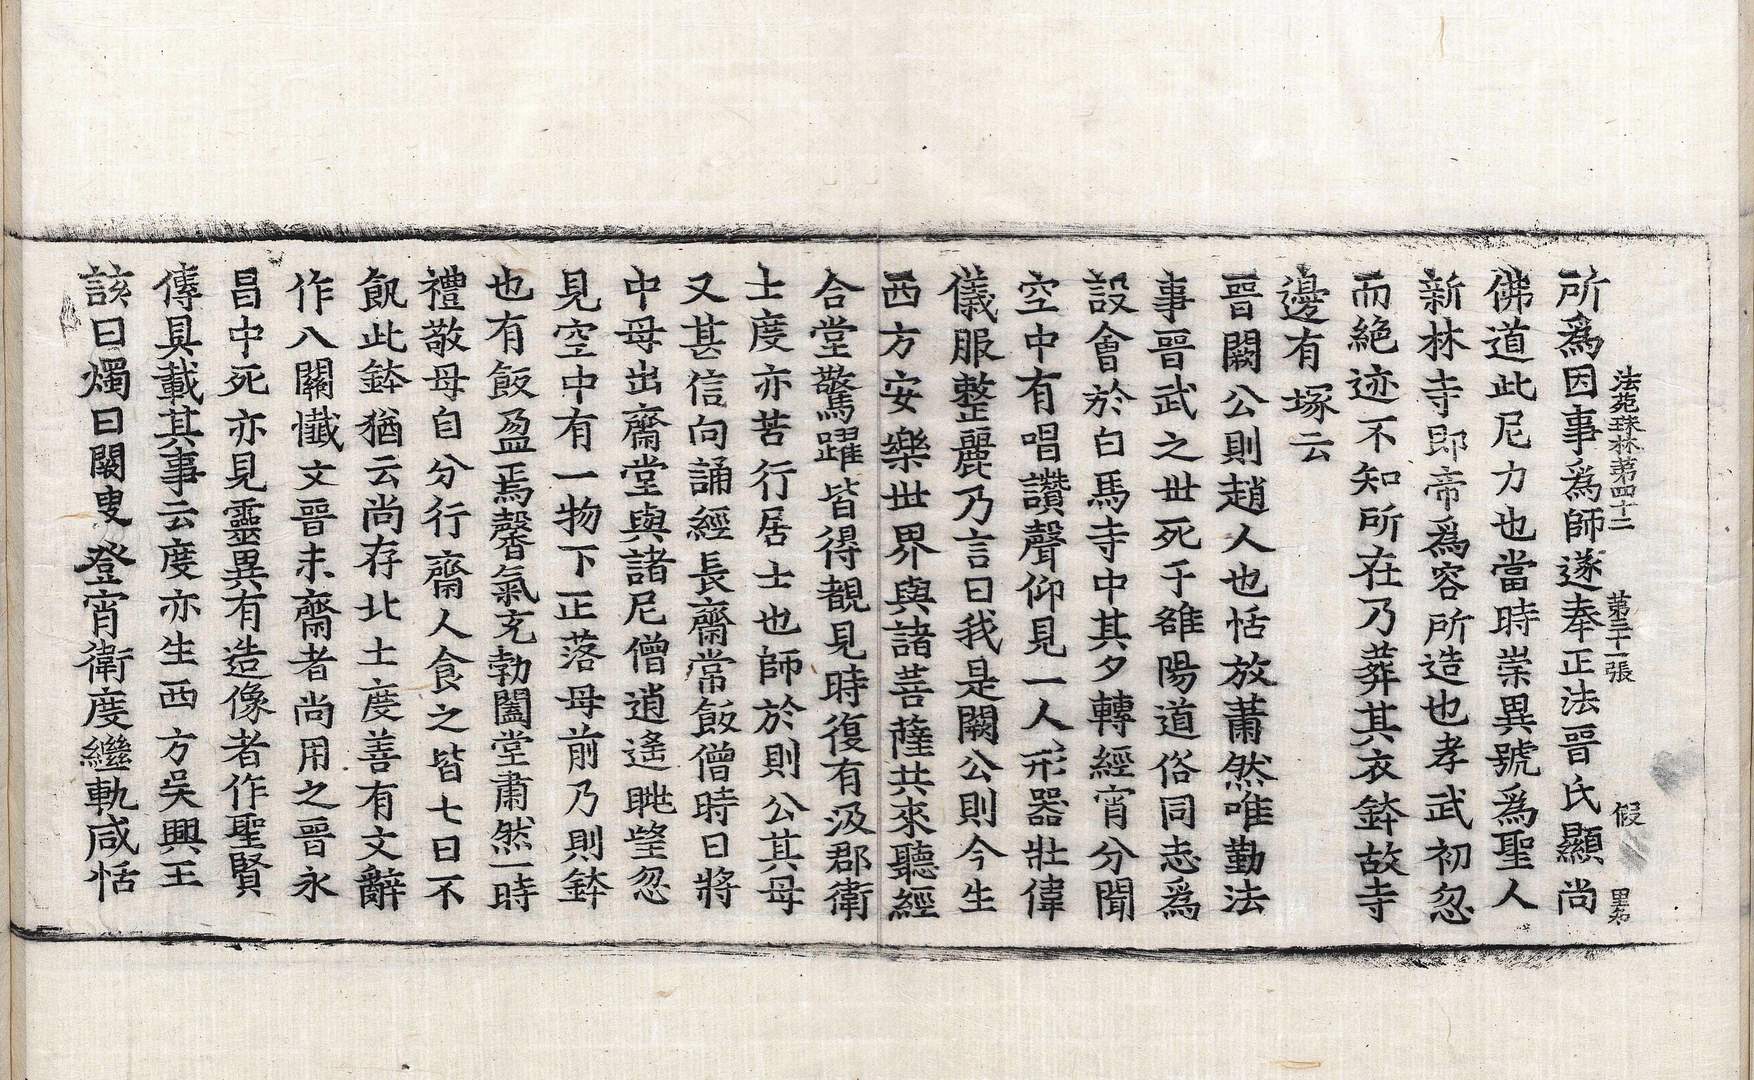 法苑珠林第四十二　第三十一張　假
所爲因事爲師遂奉正法晉氏顯尚
佛道此尼力也當時崇異號爲聖人
新林寺即帝爲容所造也孝武初忽
而絶迹不知所在乃葬其衣鉢故寺
邊有塚云
晉闕公則趙人也恬放蕭然唯勤法
事晉武之世死于雒陽道俗同志爲
設會於白馬寺中其夕轉經宵分聞
空中有唱讚聲仰見一人形器壯偉
儀服整麗乃言曰我是闕公則今生
西方安樂世界與諸菩薩共來聽經
合堂驚躍皆得覩見時復有汲郡衛
士度亦苦行居士也師於則公其母
又甚信向誦經長齋常飯僧時日將
中母出齋堂與諸尼僧逍遙眺望忽
見空中有一物下正落母前乃則鉢
也有飯盈焉馨氣充勃闔堂肅然一時
禮敬母自分行齋人食之皆七日不
飢此鉢猶云尚存北土度善有文辭
作八關懺文晉末齋者尚用之晉永
昌中死亦見靈異有造像者作聖賢
傳具載其事云度亦生西方吳興王
該曰燭曰闕叟登宵衛度繼軌咸恬